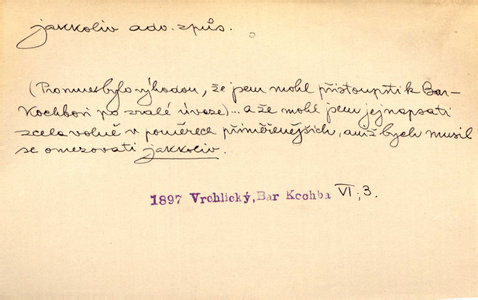 jakkoliv adv. způs.
(Pro mne bylo výhodou, že jsem mohl přistoupiti k Bar-
Kochbovi po zralé úvaze)... a že mohl jsem jej napsati
zcela volně v poměrech přiměřenějších, aniž bych musil
se omezovati jakkoliv.
1897 Vrchlický, Bar Kochba VI, 3.